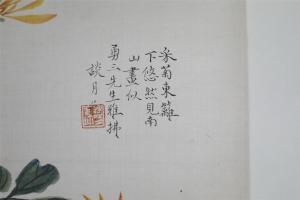 采菊東籬
下悠然見南
山畫似
勇三先生雅拂
談月色